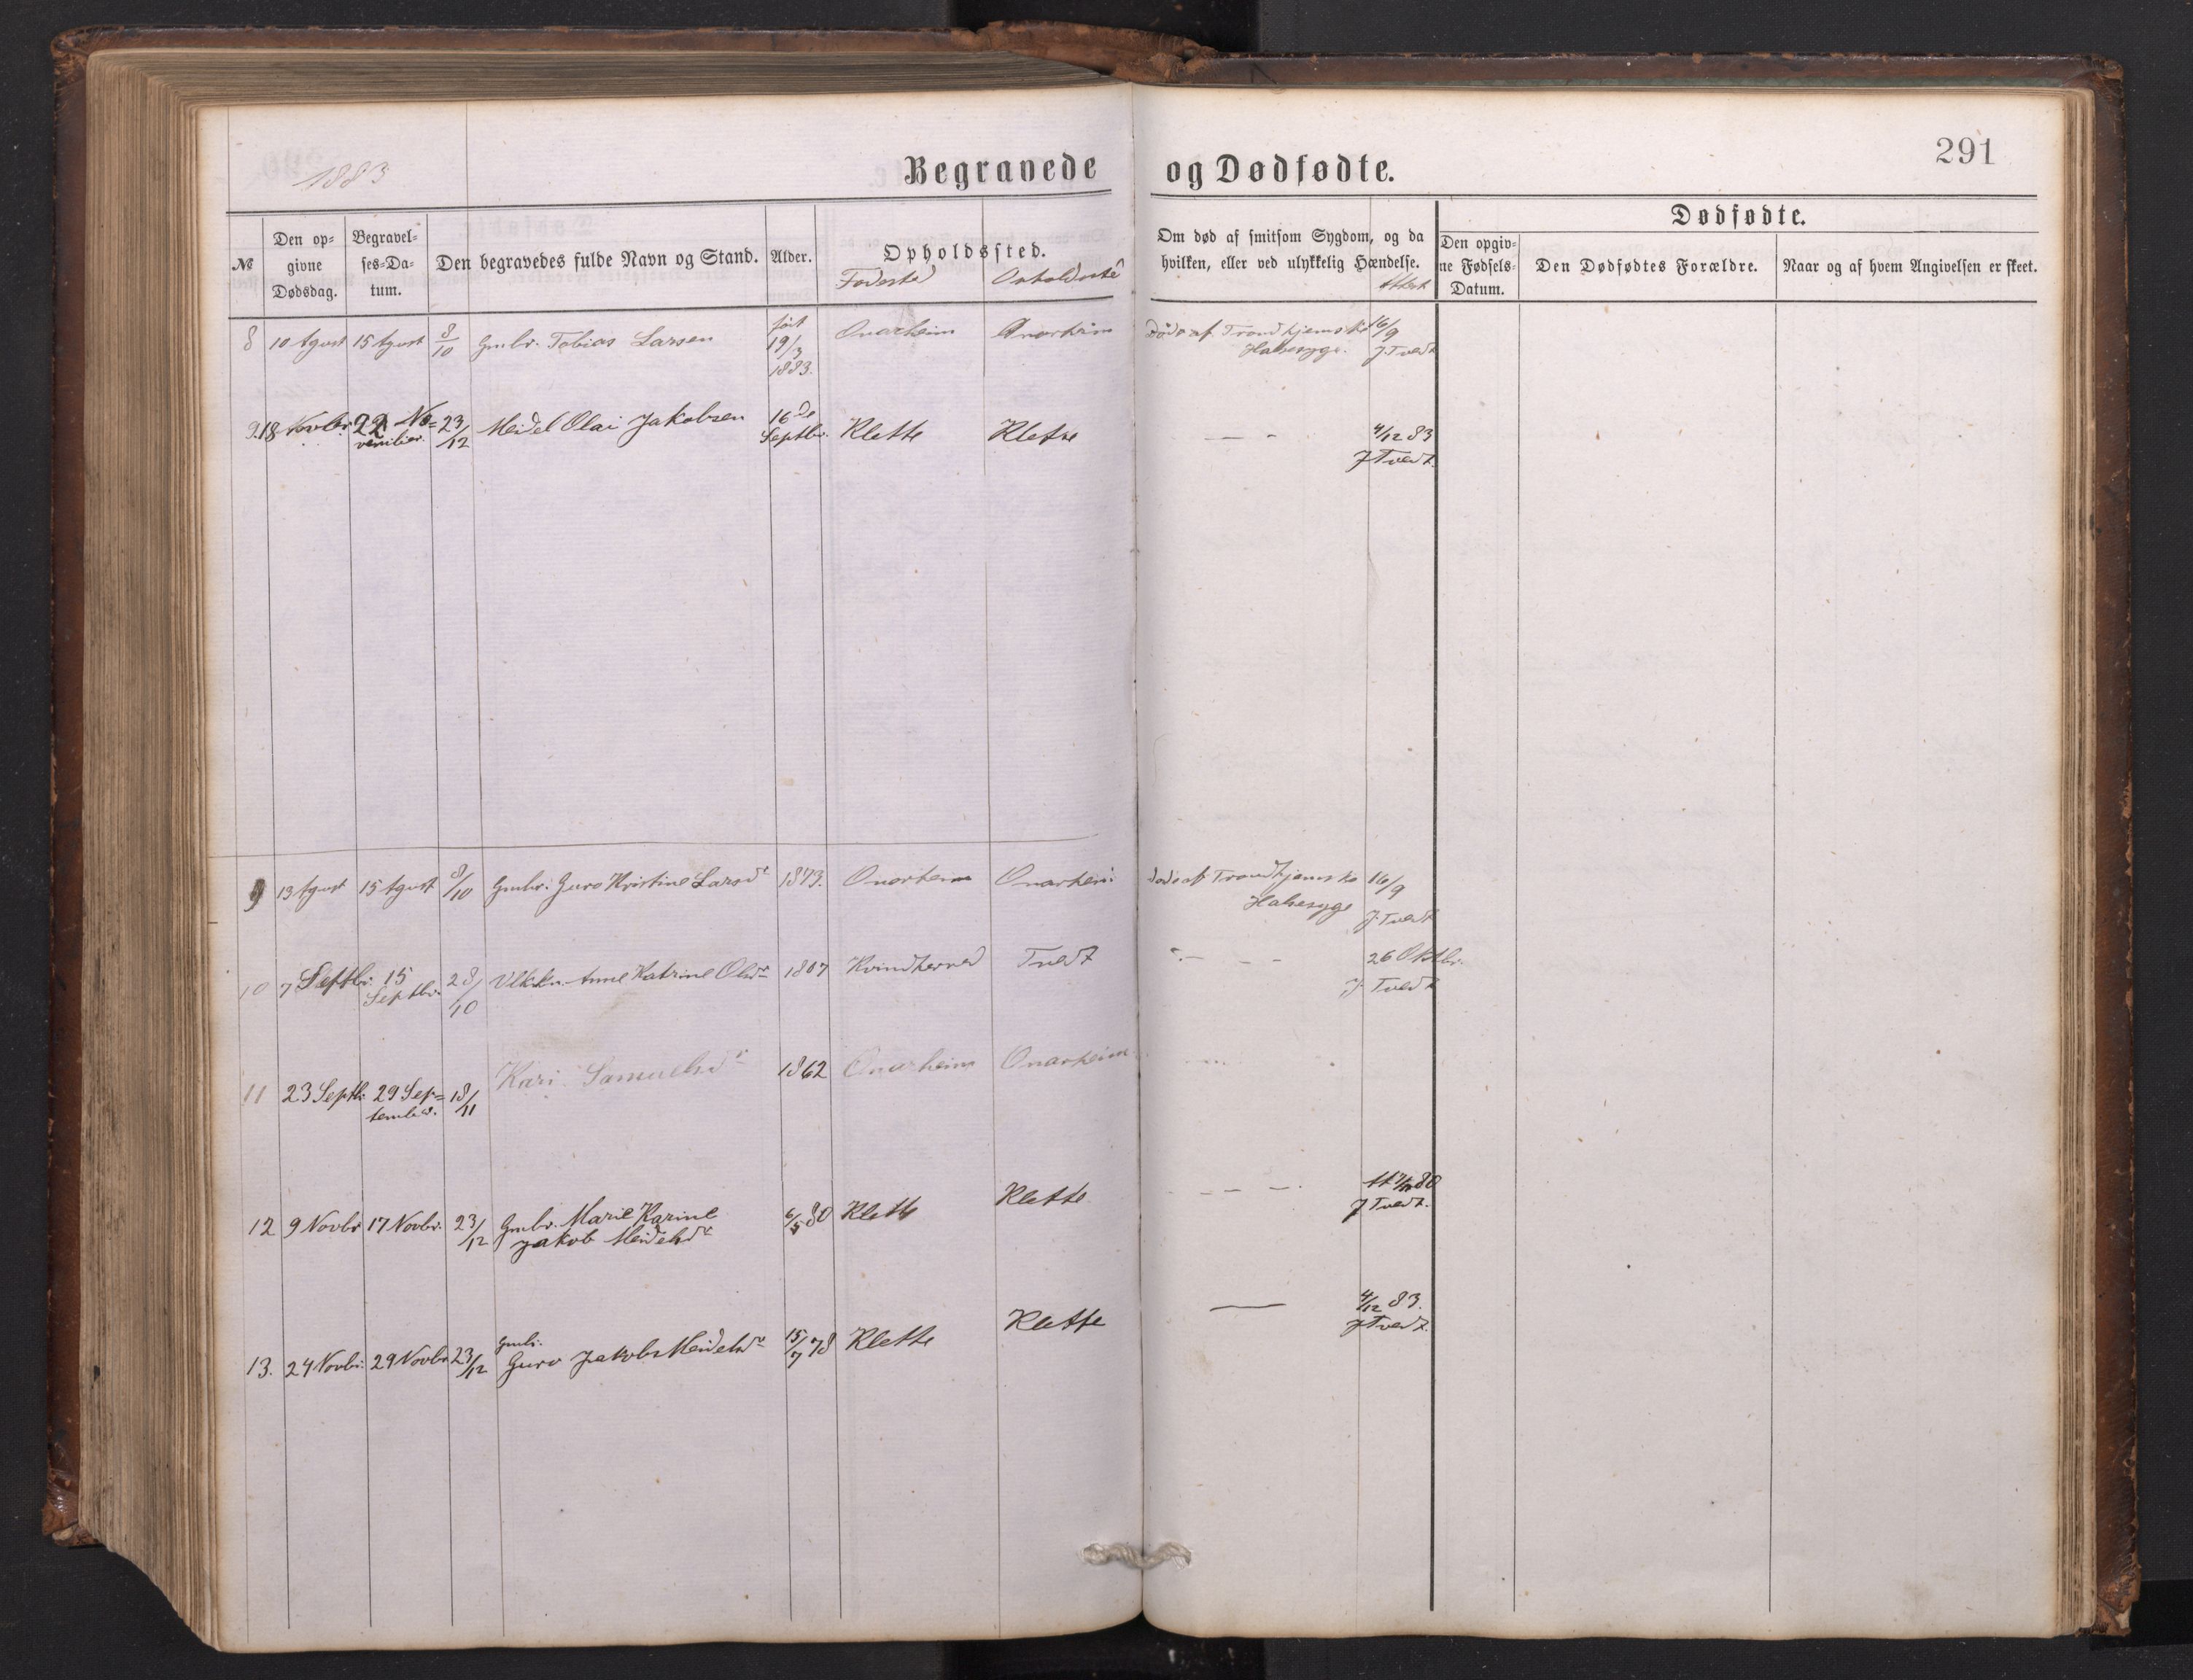 1883
Begravede og Dødfødte.
291
№
Den op=
givne
Dødsdag.
Begravel=
ses=Da=
tum.
Den begravedes fulde Navn og Stand.
Alder.
Opholdssted.
Fødested
Om død af smitsom Sygdom, og da
hvilken, eller ved ulykkelig Hændelse.
Attest
Dødfødte.
Den opgiv=
ne Fødsels=
Datum.
Den Dødfødtes Forældre.
Naar og af hvem Angivelsen er skeet.
8 10 Agust 15 Agust 8/10 Gmbr. Tobias Larsen født 19/3 1883. Onarheim Onarheim Døde af Trondhjemske 16/9
Halsesyge. J. Tvedt
9. 18 Novbr 22 No=
vember. 23/12 Meidel Olai Jakobsen 16de
Septbr. Klette Klette — - 4/12 83
J Tvedt.
9 13 Agust 15 Agust 8/10 Gmbr. Guro Kristine Larsdr 1873. Onarheim Onarheim døde af Trondhjemske 16/9
Halsesyge J. Tvedt
10 7 Septbr. 15
Septbr. 28/10 Anne Katrine Olsdr 1807 Kvindherred Tvedt - - - 26 Oktbr.
J. Tvedt
11 23 Septb. 29 Sep=
tember. 18/11 Kari Samuelsdr 1862 Onarheim Onarheim
12 9 Novbr 17 Novbr. 23/12 Gmbr. Marie Karine
Jakob Meidelsdr 6/5 80 Klette Klette - - -
J Tvedt.
13. 24 Novbr. 29 Novbr 23/12 Gmbr.
Guro Jakobs Meidelsdr 15/7 78 Klette Klette — 4/12 83.
J Tvedt.